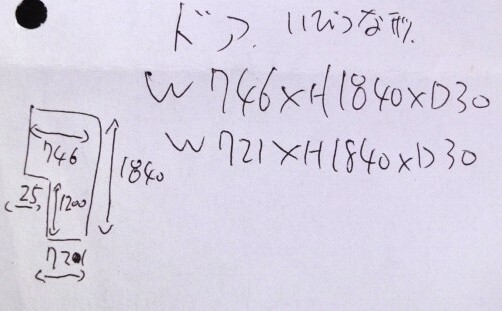 ドア. いびつな形.
W 746×H1840×D30
W 721×H1840×D30
746
1840
25
1200
721